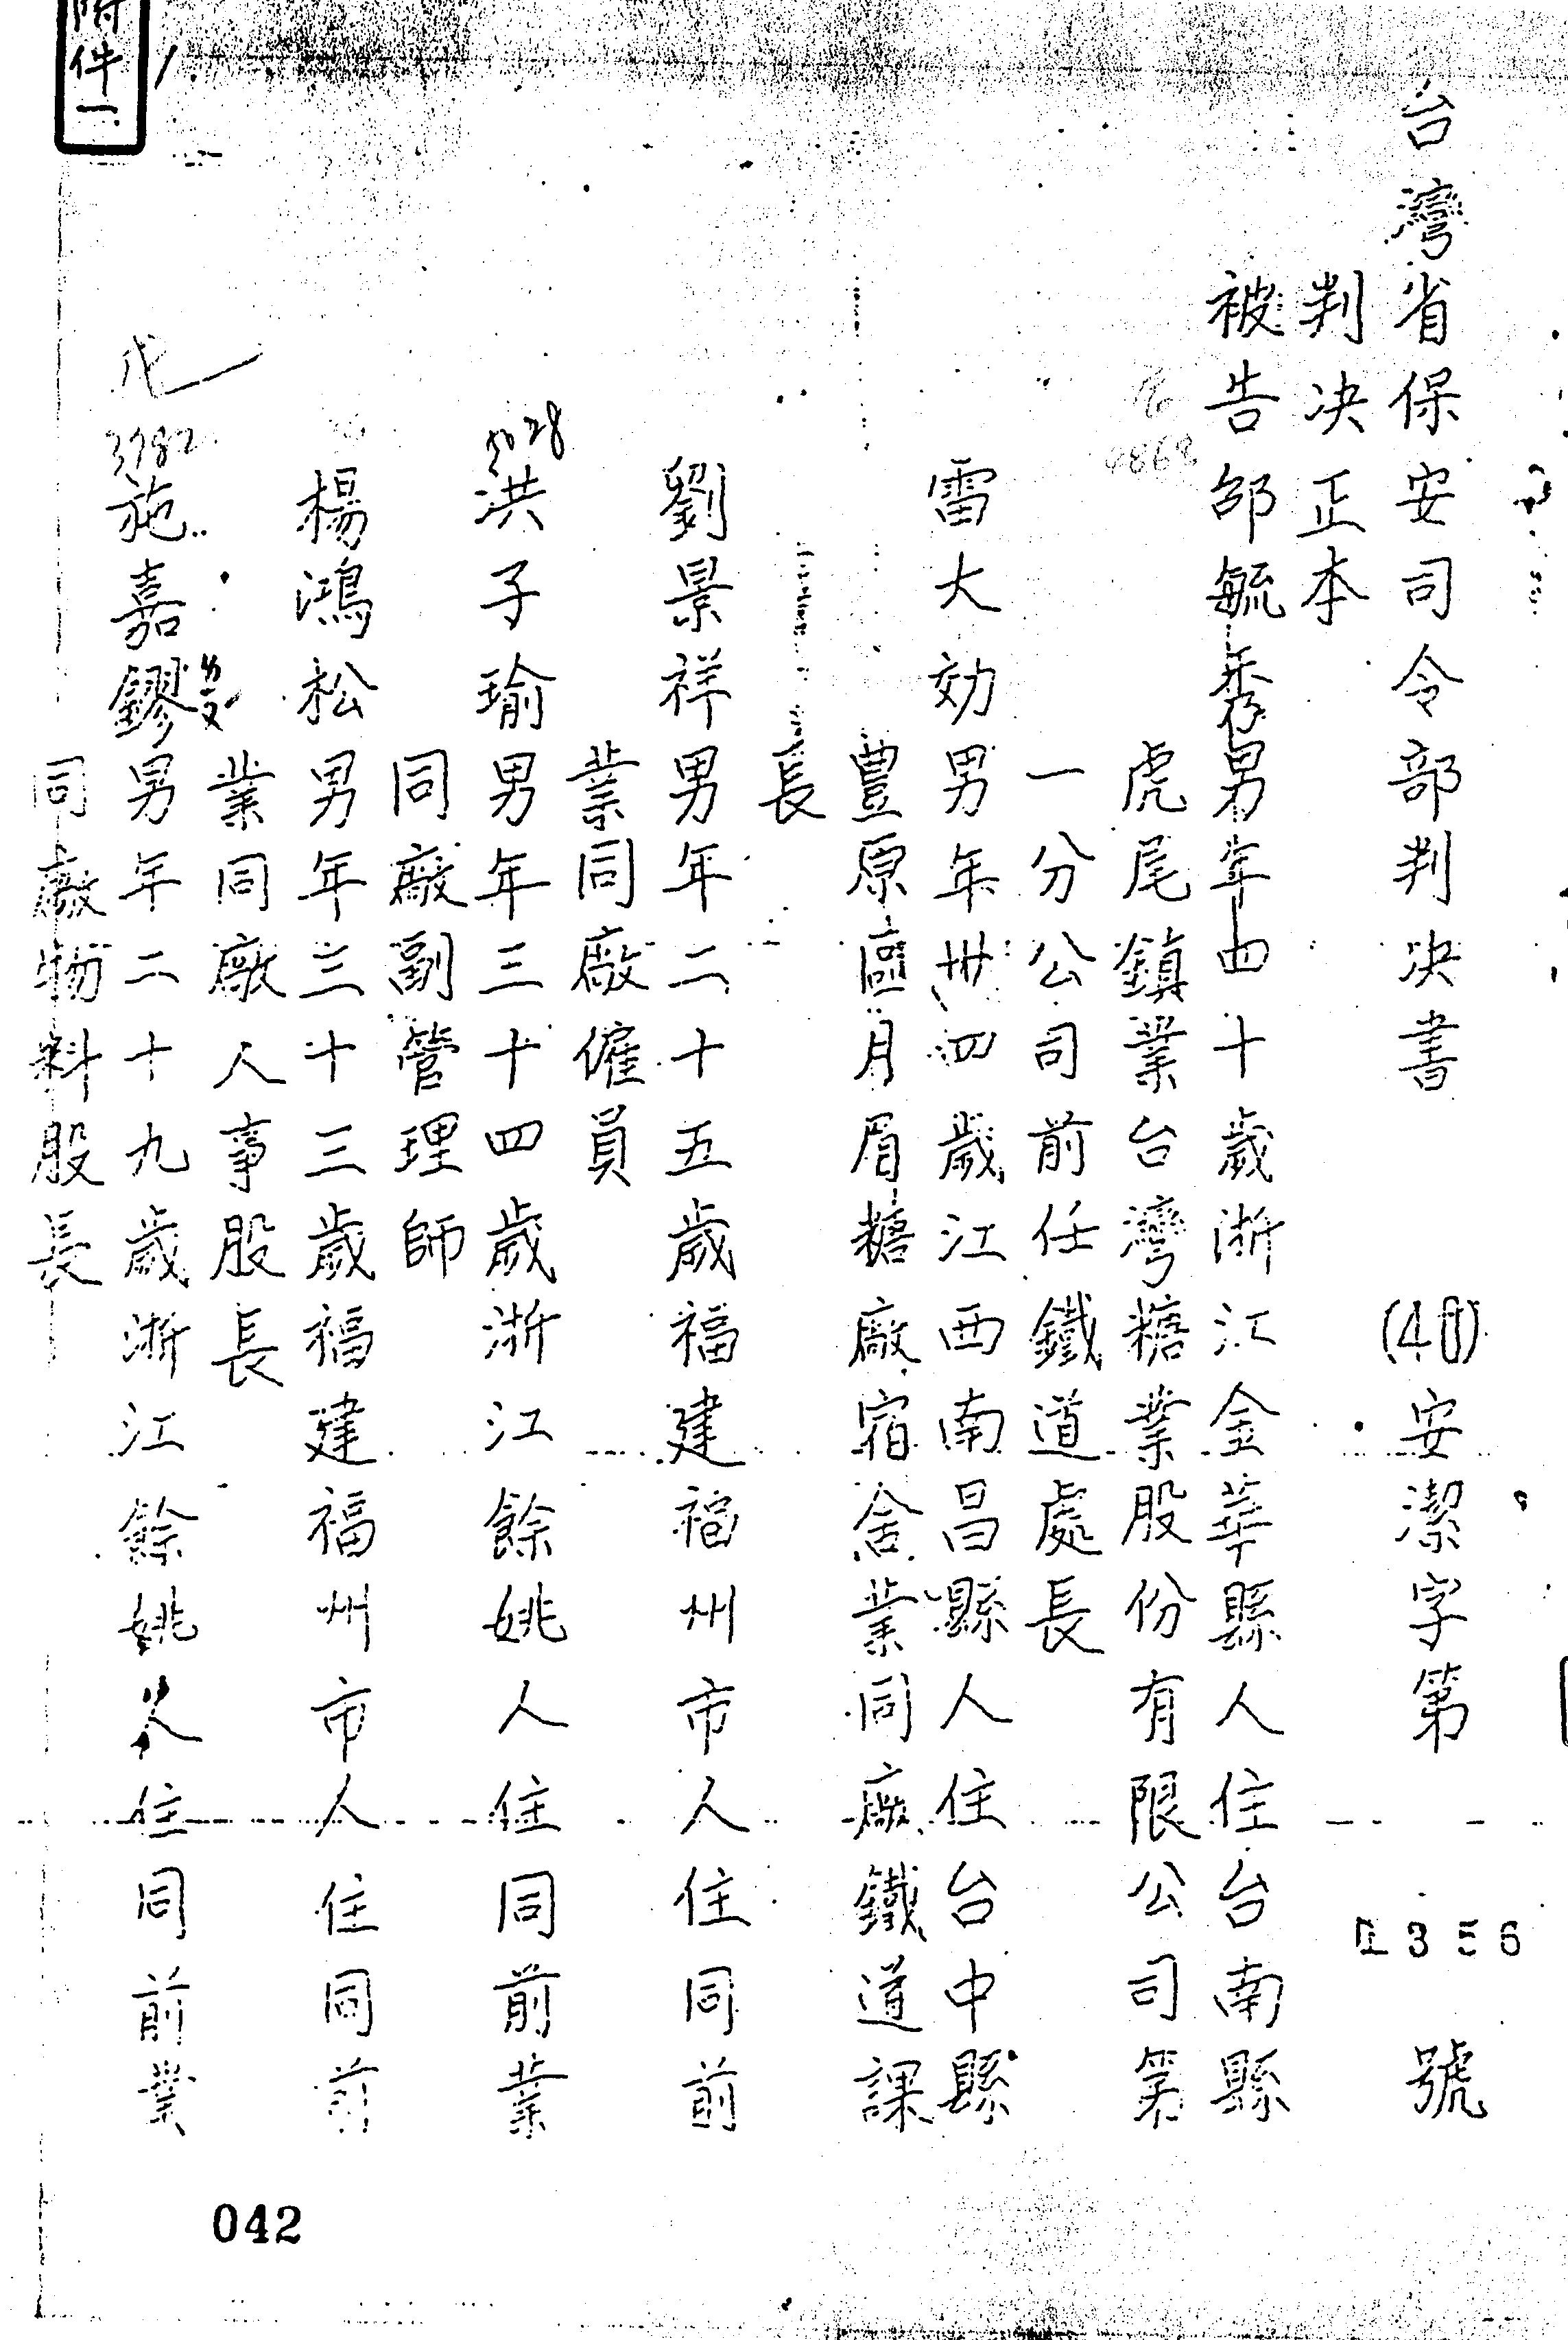 附件一
1.
台灣省保安司令部判决書 (40)安潔字第 1356 號
判决正本
被告邵毓秀男年四十歲浙江金華縣人住台南縣
虎尾鎮業台灣糖業股份有限公司第
4868
一分公司前任鐵道處長
雷大効男年卅四歲江西南昌縣人住台中縣
豐原區月眉糖廠宿舍業同廠鐵道課
長
劉景祥男年二十五歲福建福州市人住同前
業同廠僱員
洪子瑜男年三十四歲浙江餘姚人住同前業
同廠副管理師
楊鴻松男年三十三歲福建福州市人住同前
業同廠人事股長
3782
施嘉鏐男年二十九歲浙江餘姚人住同前業
同廠物料股長
042